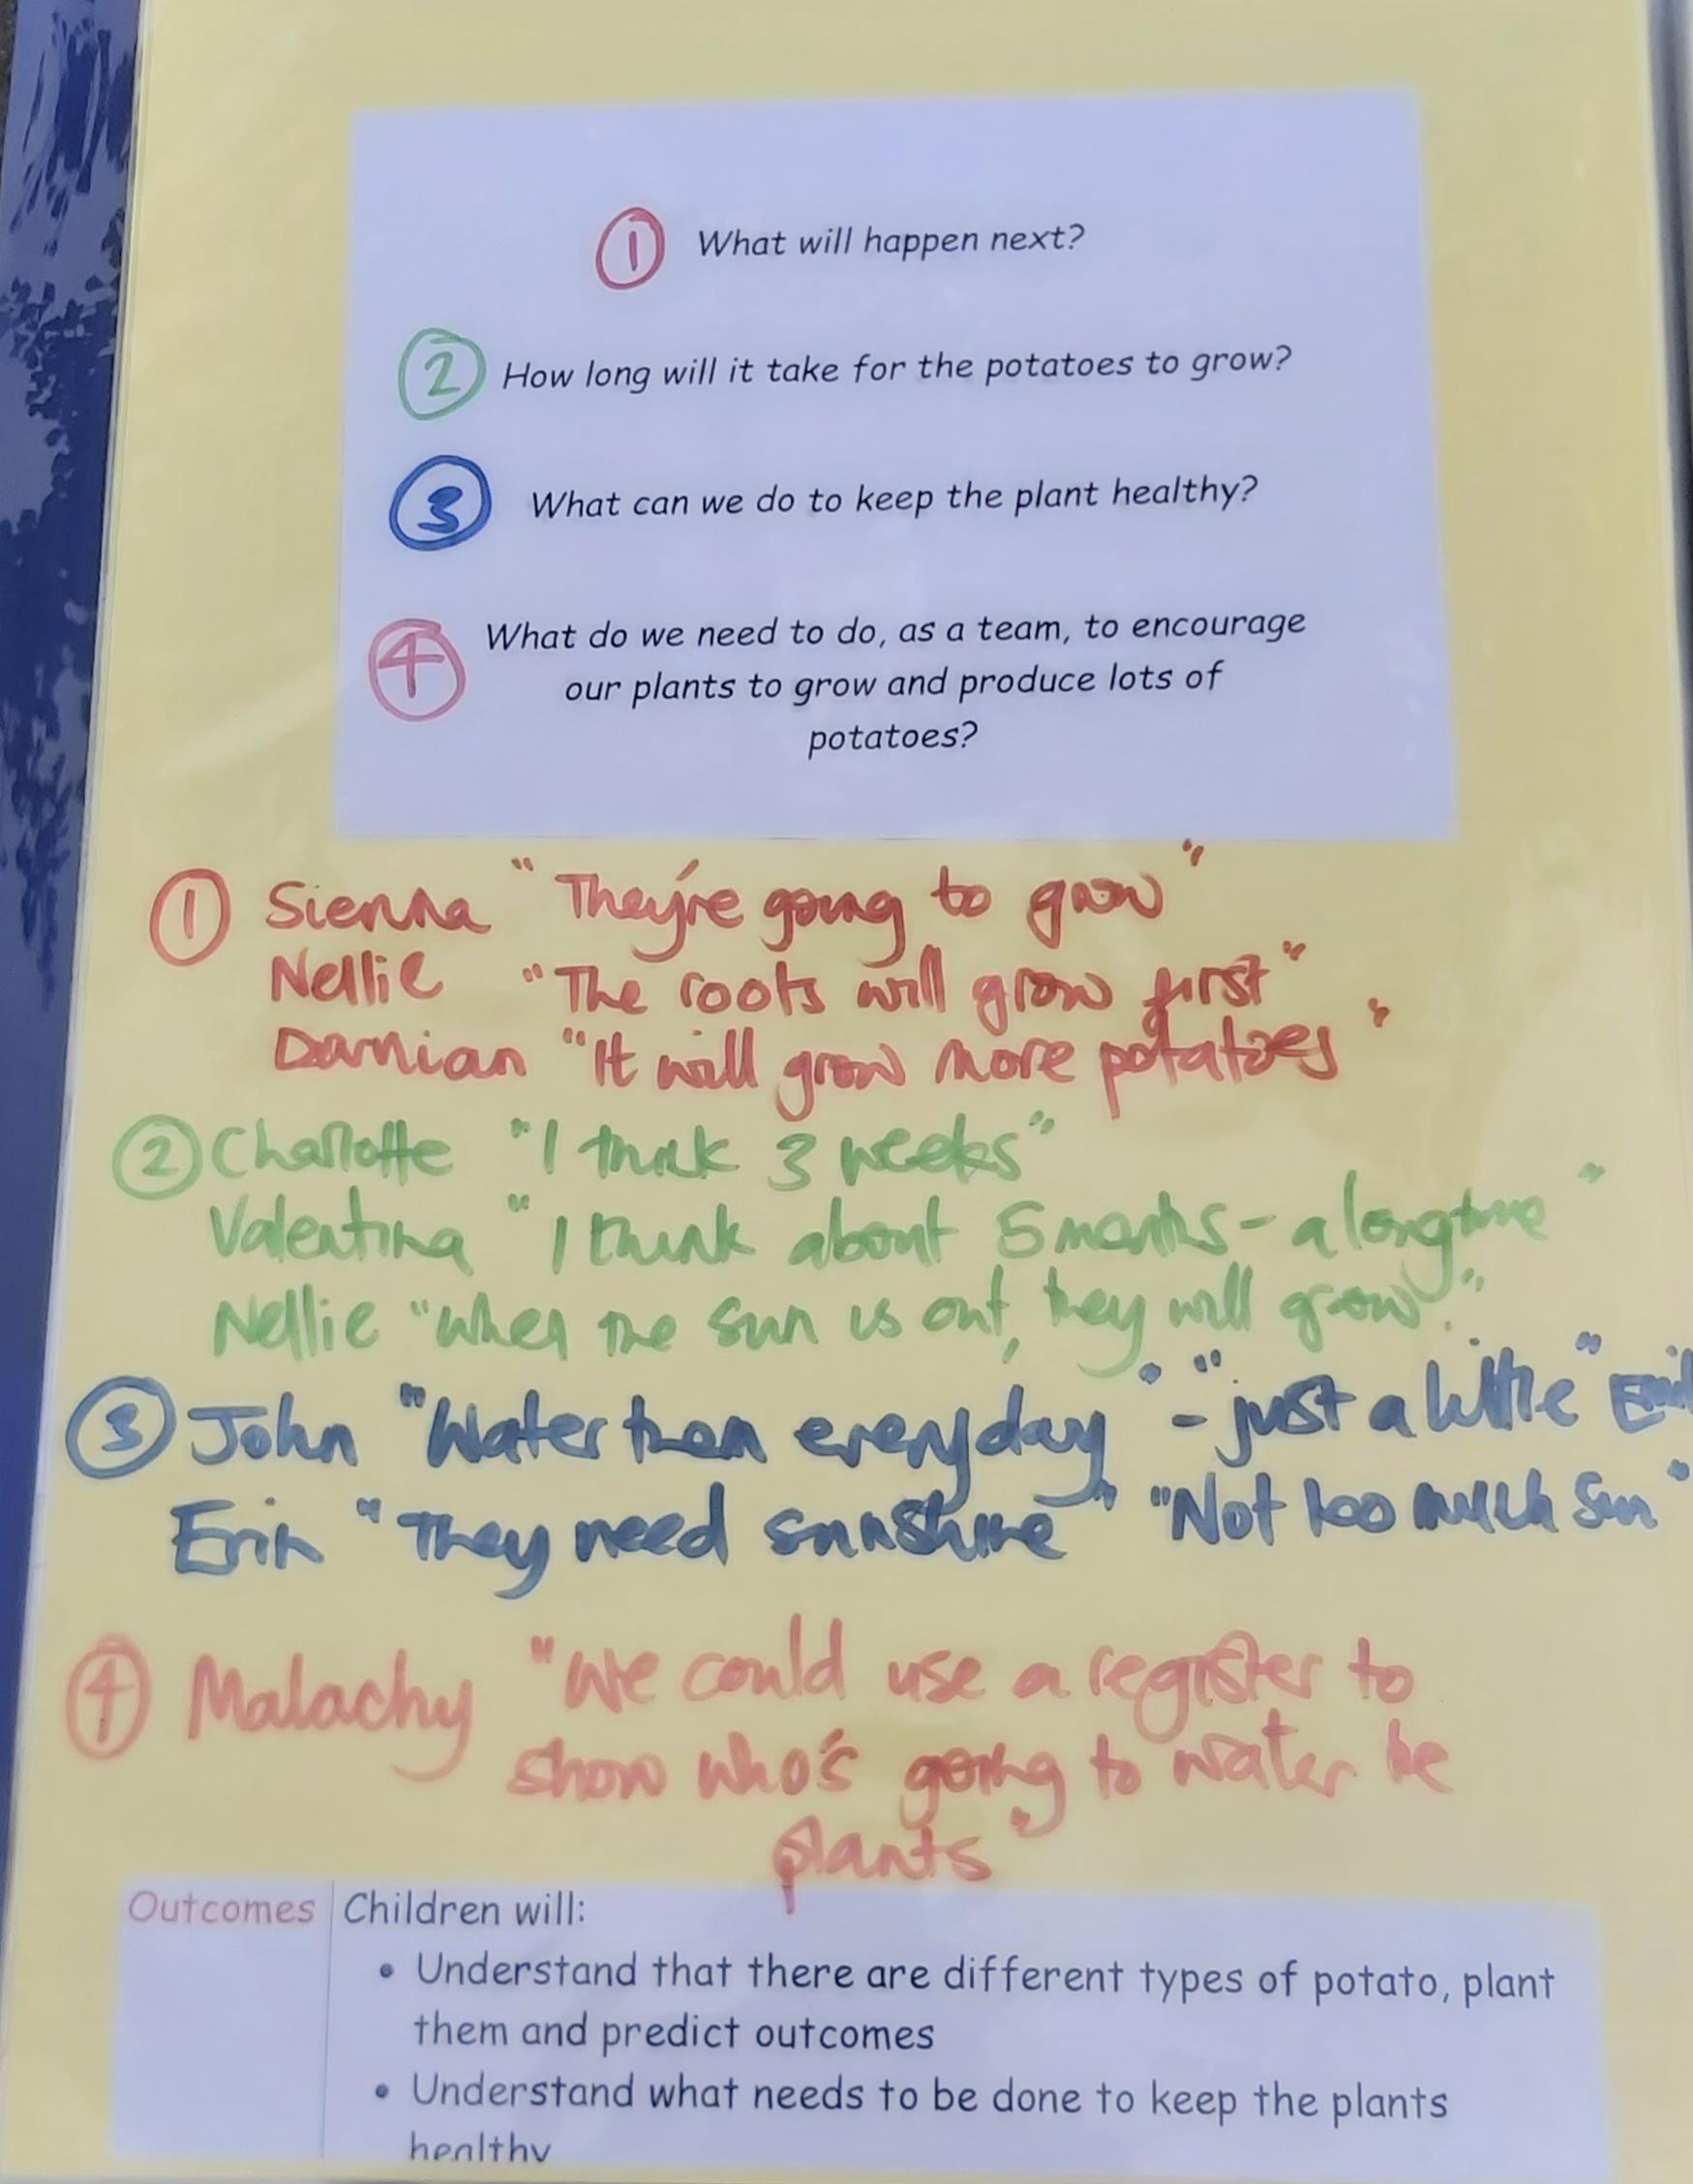 ① What will happen next?
② How long will it take for the potatoes to grow?
③ What can we do to keep the plant healthy?
④ What do we need to do, as a team, to encourage
our plants to grow and produce lots of
potatoes?
① Sienna "They're going to grow"
Nellie "The roots will grow first"
Damian "It will grow more potatoes"
② Charlotte "I think 3 weeks"
Valentina "I think about 5 months - a long time"
Nellie "when the sun is out, they will grow."
③ John "Water them everyday" - "just a little"
Erin "They need sunshine" "Not too much sun"
④ Malachy "We could use a register to
show who's going to water the
plants"
Outcomes Children will:
• Understand that there are different types of potato, plant
them and predict outcomes
• Understand what needs to be done to keep the plants
healthy